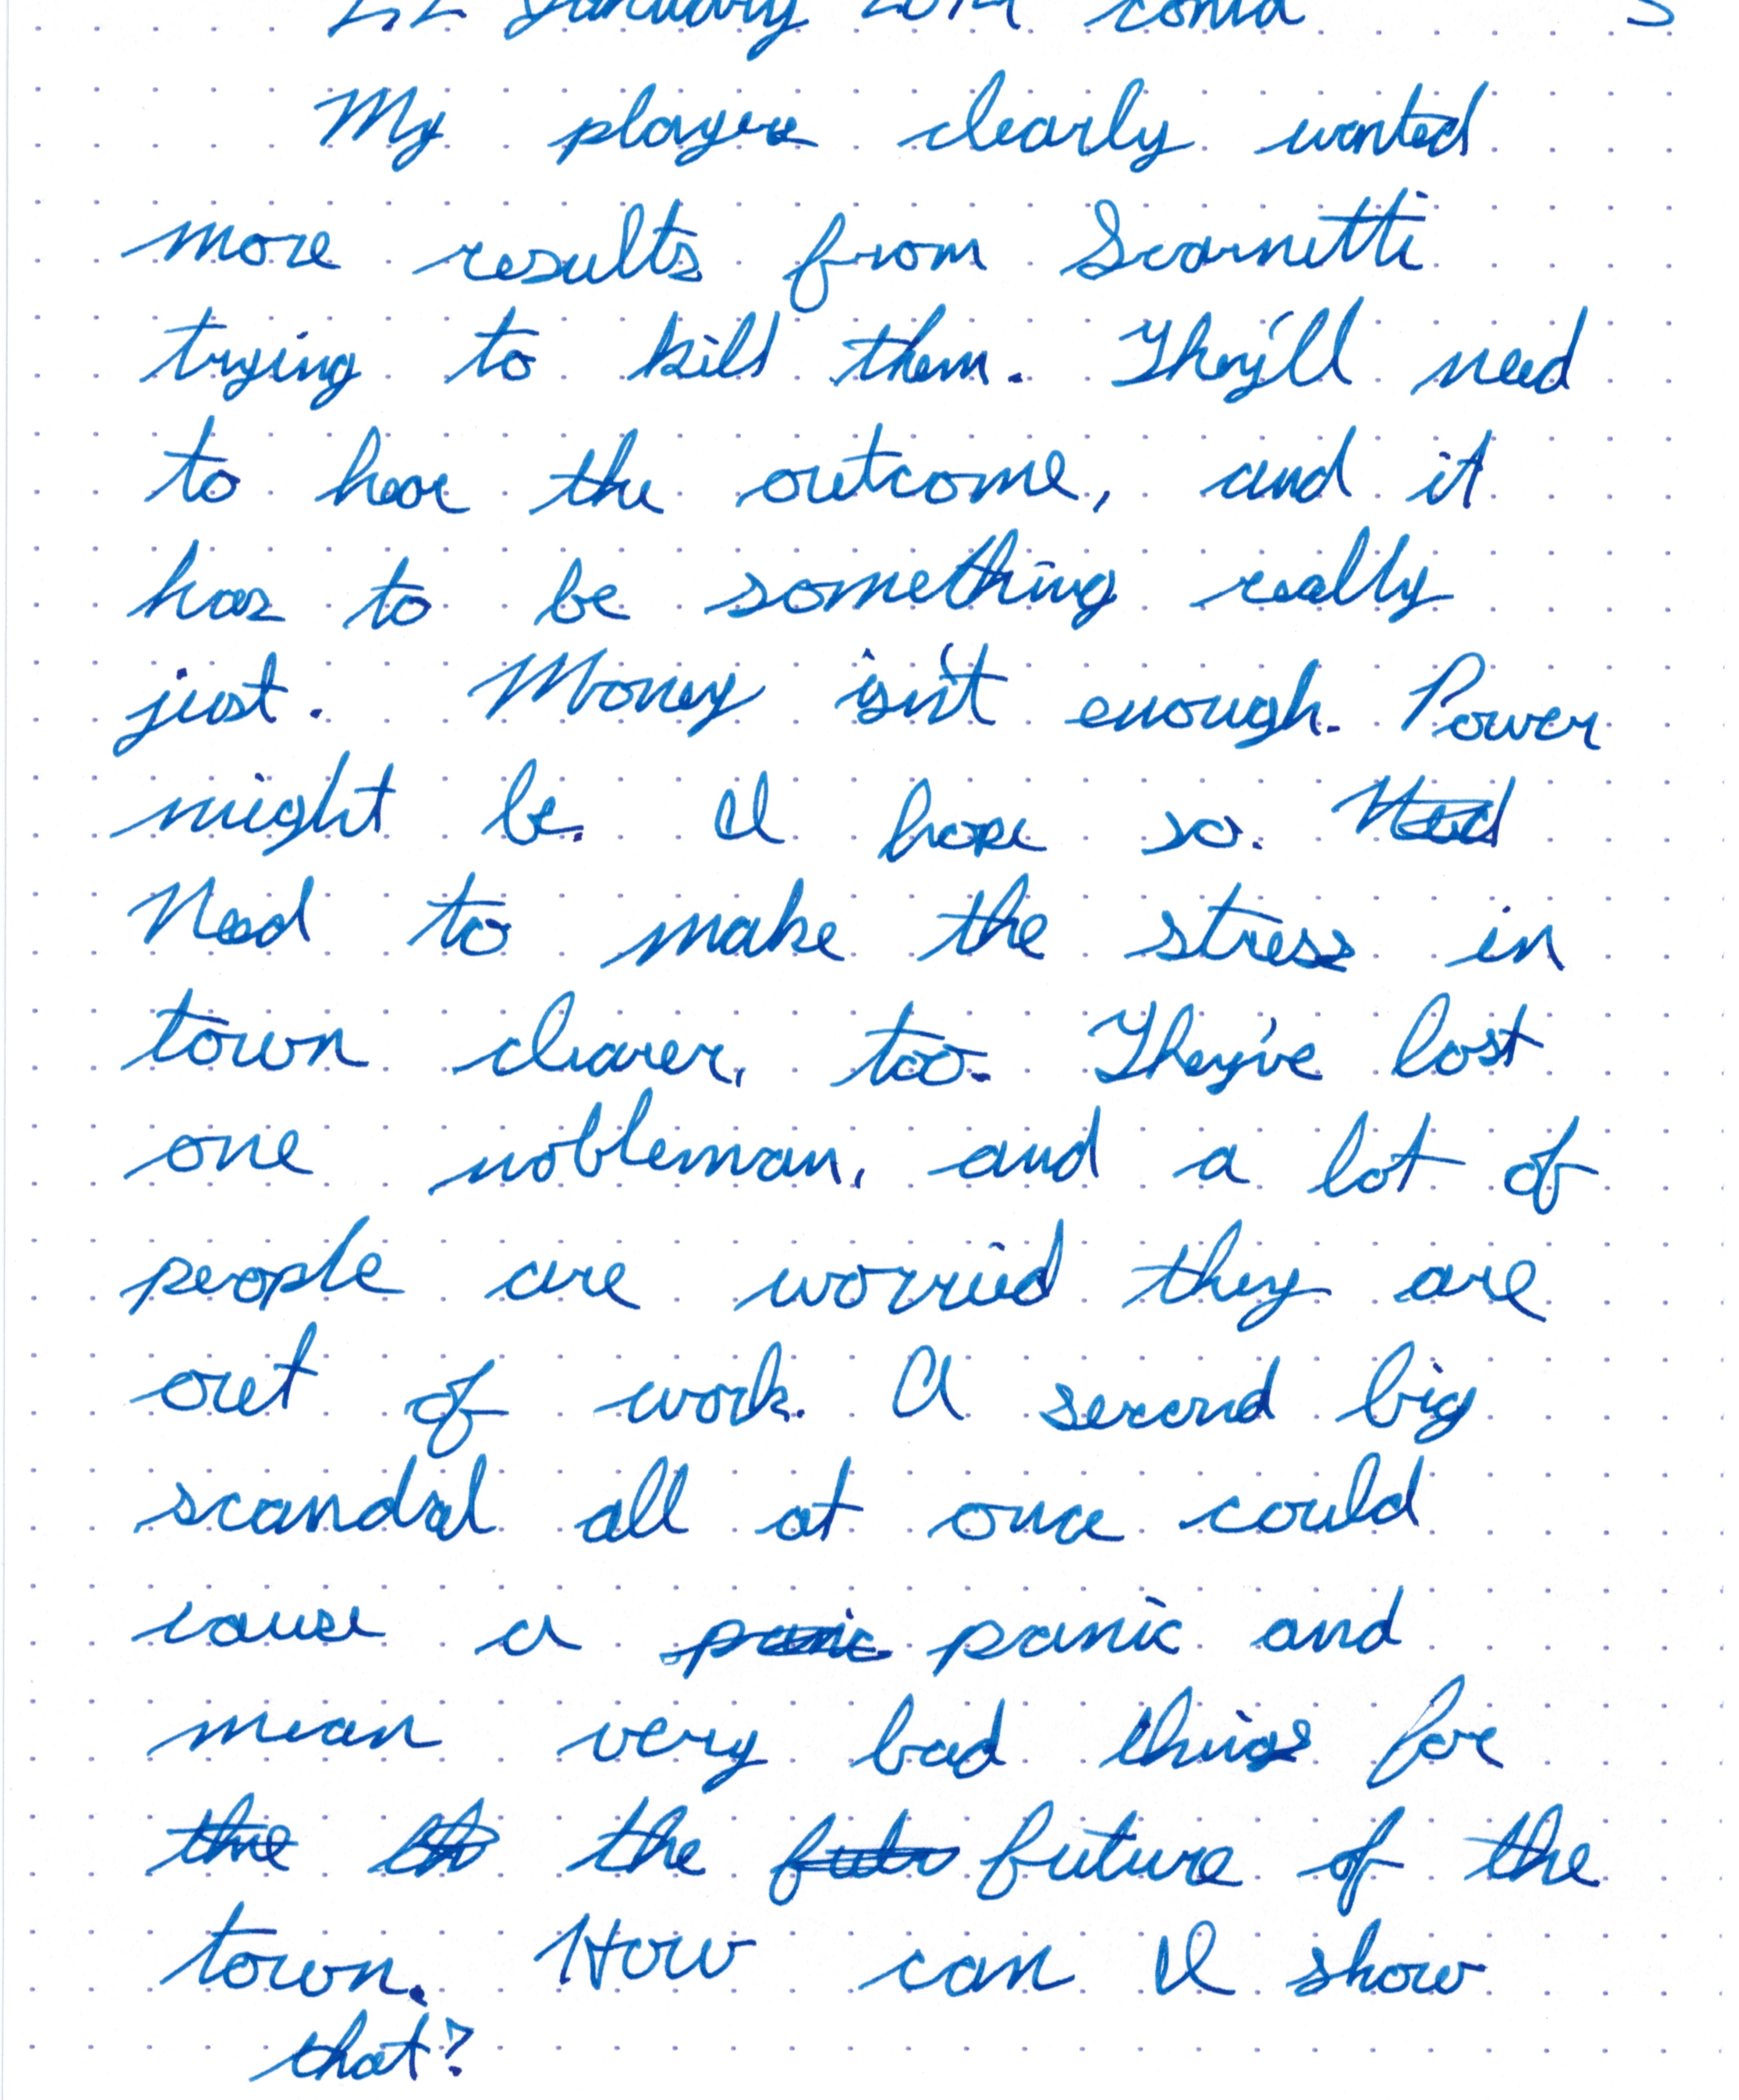 January contd
My players clearly wanted
more results from Scarnetti
trying to kill them. They'll need
to hear the outcome, and it
has to be something really
just. Money isn't enough. Power
might be. I hope so. Need
Need to make the stress in
town clearer, too. They've lost
one nobleman, and a lot of
people are worried they are
out of work. A second big
scandal all at once could
cause a panic panic and
mean very bad things for
the the futu future of the
town. How can I show
that?